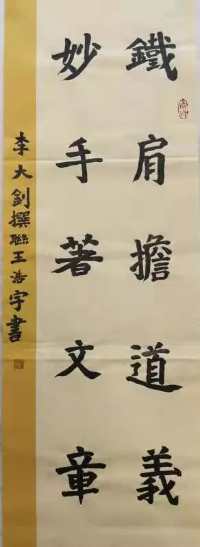 鐵肩擔道義
妙手著文章
李大釗撰聯王浩宇書